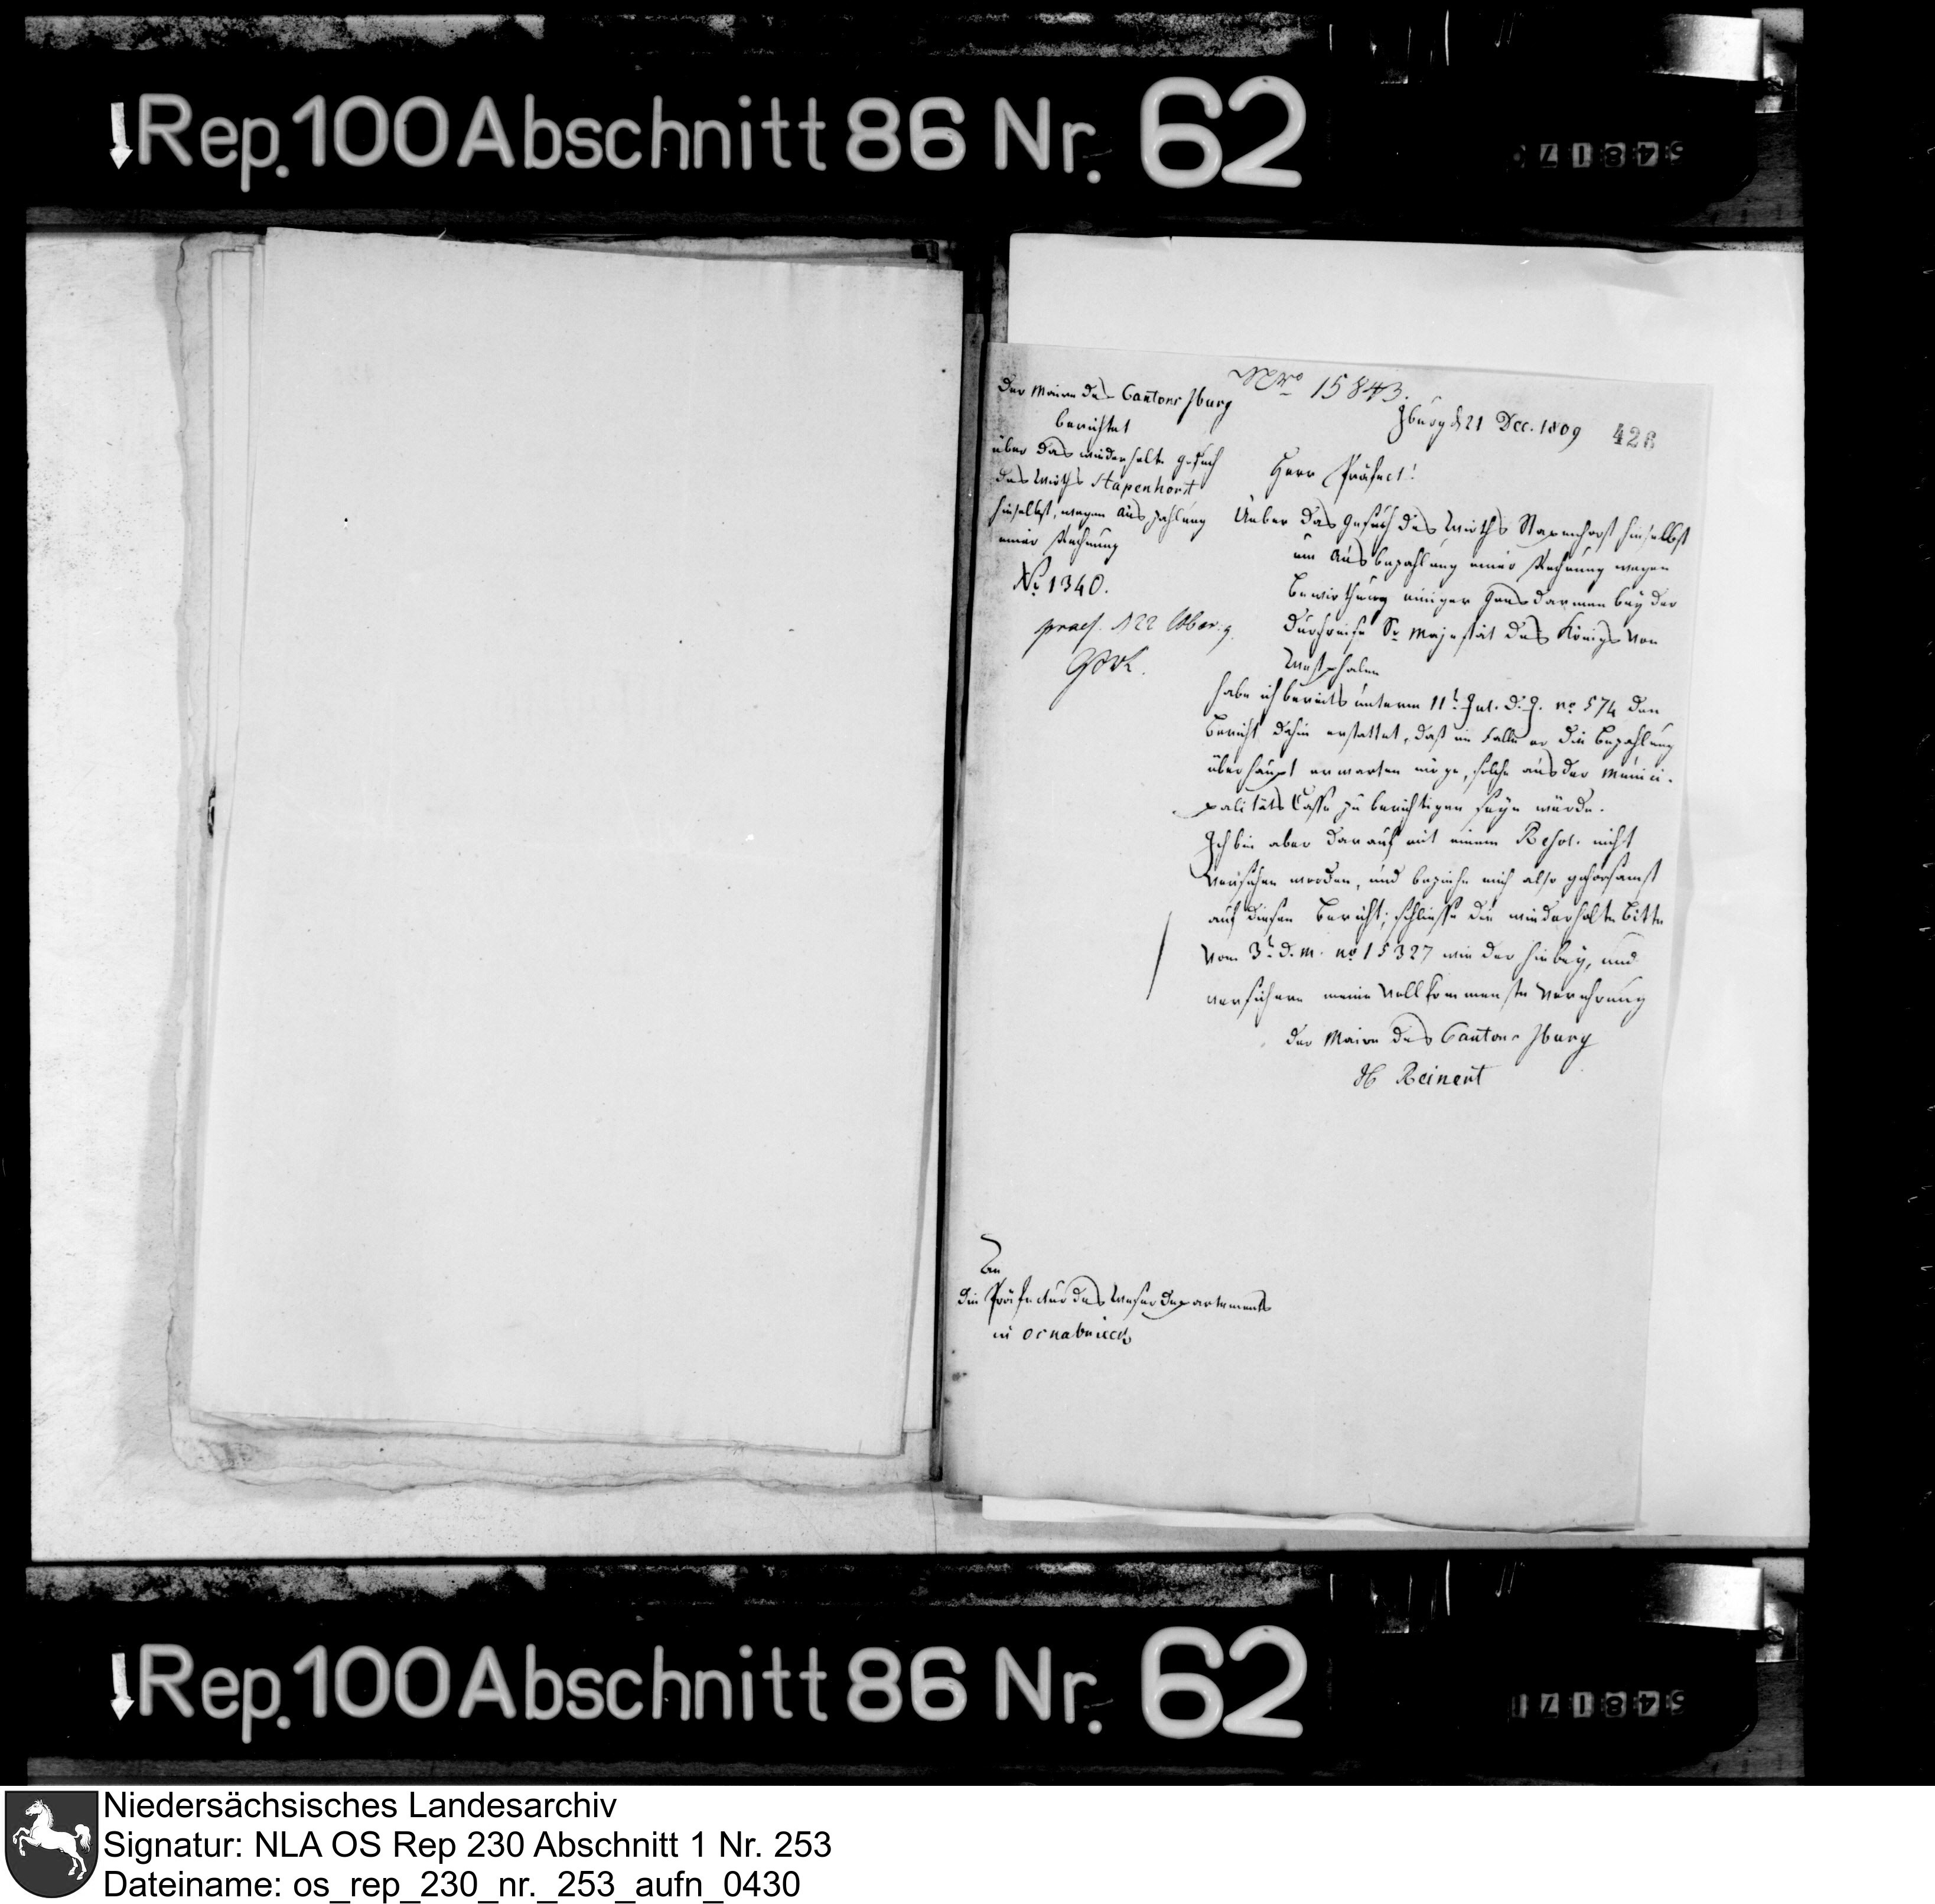 Rep. 100 Abschnitt 86 Nr. 62
No 15843.
Iburg d 21 Dec. 1809
426
Der Maire des Cantons Iburg
berichtet
über das wiederholte Gesuch
des Wirths Stapenhorst
hieselbst, wegen Auszahlung
einer Rechnung
No 1340.
praes. d 22 Xber. 9.
Herr Präfect!
Ueber das Gesuch des Wirths Stapenhorst hieselbst
um Ausbezahlung einer Rechnung wegen
Bewirthung einiger Gensdarmen bey der
Durchreise Sr Majestät des Königs von
Westphalen
habe ich bereits unterm 11t Jul. d. J. no 574 den
Bericht dahin erstattet, daß im Falle er die Bezahlung
überhaupt erwarten möge, solche aus der Munici-
palitäts Casse zu berichtigen seyn würde.
Ich bin aber darauf mit einem Resol. nicht
versehen worden, und beziehe mich also gehorsamst
auf diesen Bericht; schliesse die wiederholte Bitte
vom 3t d. m. no 15327 wieder hiebey, und
versichere meine vollkommenste Verehrung
Der Maire des Cantons Iburg
H Reinert
An
die Präfectur des Weser Departements
in Osnabrück
Rep. 100 Abschnitt 86 Nr. 62
Niedersächsisches Landesarchiv
Signatur: NLA OS Rep 230 Abschnitt 1 Nr. 253
Dateiname: os_rep_230_nr._253_aufn_0430